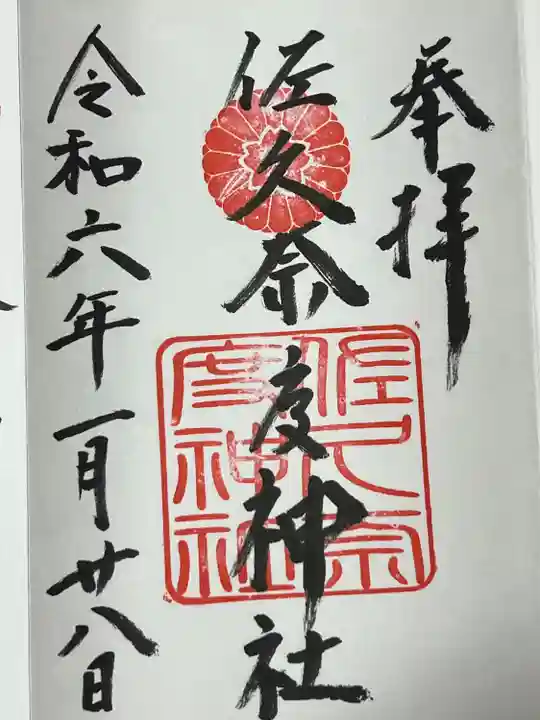 奉拝
佐久奈度神社
佐久奈度神社
令和六年一月廿八日